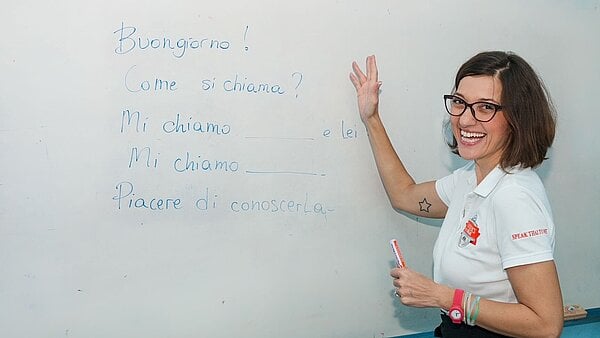 Buongiorno!
Come si chiama?
Mi chiamo ________ e lei
Mi chiamo ________.
Piacere di conoscerLa.